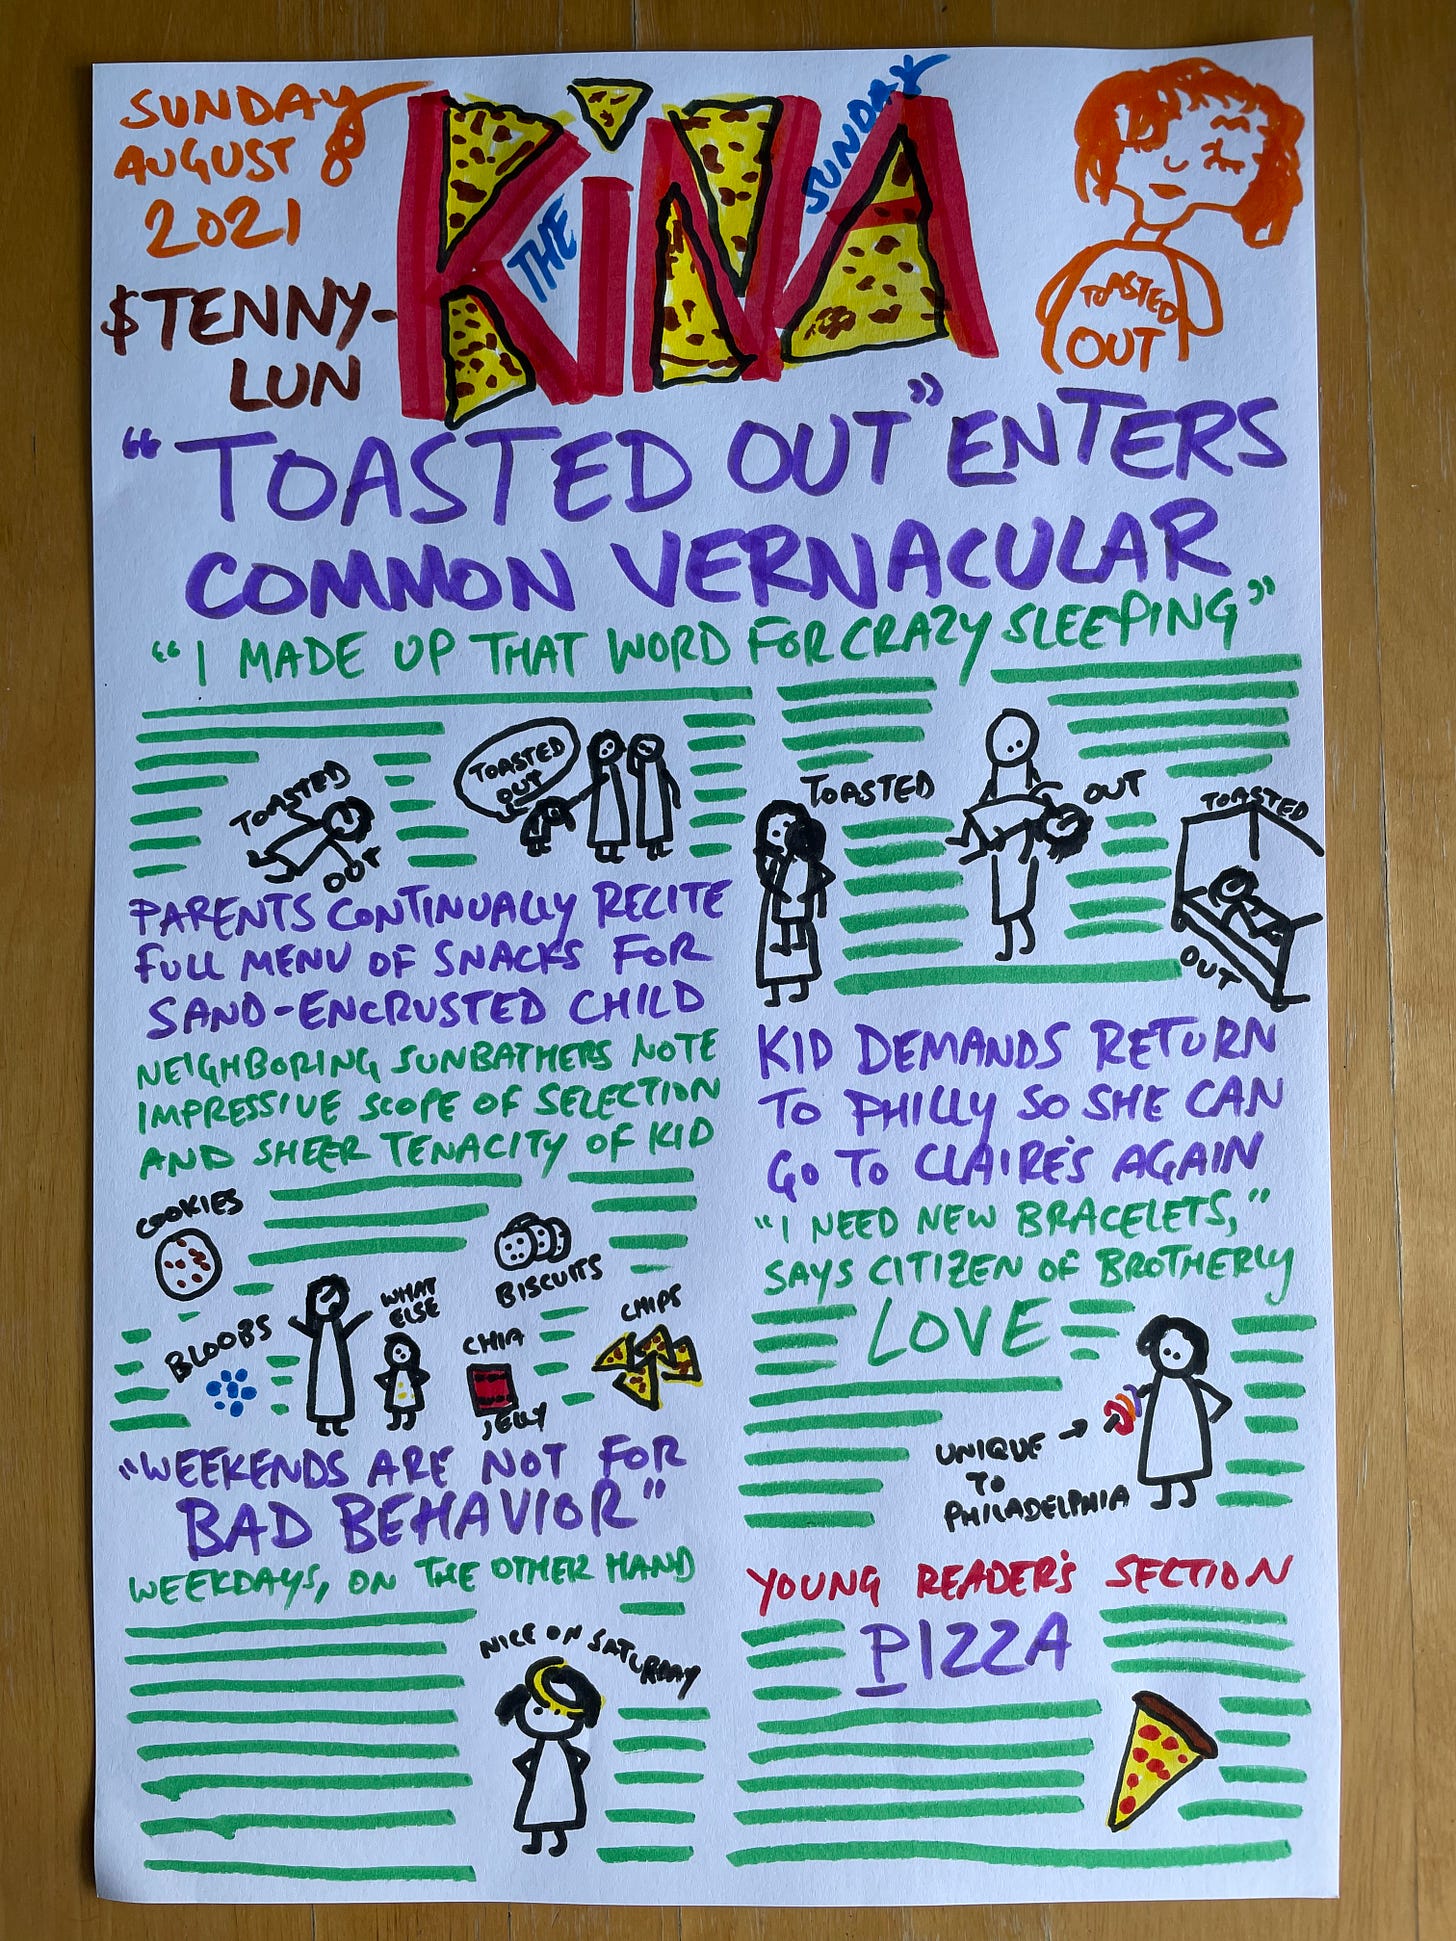 SUNDAY
AUGUST 8
2021
$TENNY-
LUN
THE
KiNA
SUNDAY
TOASTED
OUT
"TOASTED OUT" ENTERS
COMMON VERNACULAR
"I MADE UP THAT WORD FOR CRAZY SLEEPING"
TOASTED
OUT
TOASTED
OUT
TOASTED
OUT
TOASTED
OUT
PARENTS CONTINUALLY RECITE
FULL MENU OF SNACKS FOR
SAND-ENCRUSTED CHILD
NEIGHBORING SUNBATHERS NOTE
IMPRESSIVE SCOPE OF SELECTION
AND SHEER TENACITY OF KID
COOKIES
BLOOBS
WHAT
ELSE
BISCUITS
CHIA
JELLY
CHIPS
"WEEKENDS ARE NOT FOR
BAD BEHAVIOR"
WEEKDAYS, ON THE OTHER HAND
NICE ON SATURDAY
KID DEMANDS RETURN
TO PHILLY SO SHE CAN
GO TO CLAIRE'S AGAIN
"I NEED NEW BRACELETS,"
SAYS CITIZEN OF BROTHERLY
LOVE
UNIQUE →
TO
PHILADELPHIA
YOUNG READER'S SECTION
PIZZA